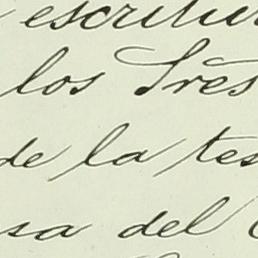 escritur
los Sres
de la tes
sa del